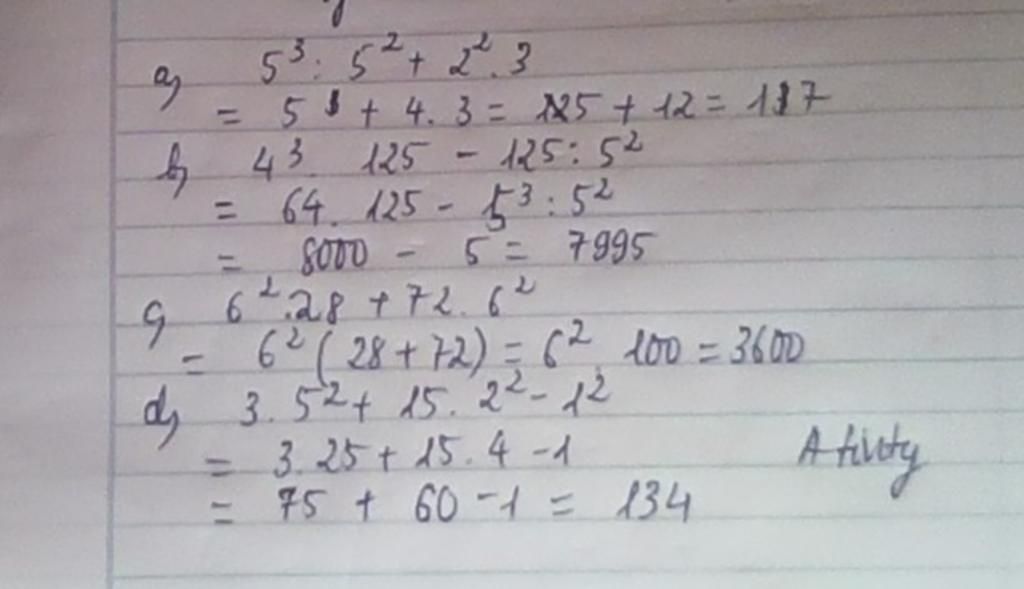 a) 5³ : 5² + 2² . 3
= 5 + 4 . 3 = 5 + 12 = 17
b) 4³ . 125 - 125 : 5²
= 64 . 125 - 5³ : 5²
= 8000 - 5 = 7995
c) 6² . 28 + 72 . 6²
= 6² (28 + 72) = 6² . 100 = 3600
d) 3 . 5² + 15 . 2² - 1²
= 3 . 25 + 15 . 4 - 1
= 75 + 60 - 1 = 134